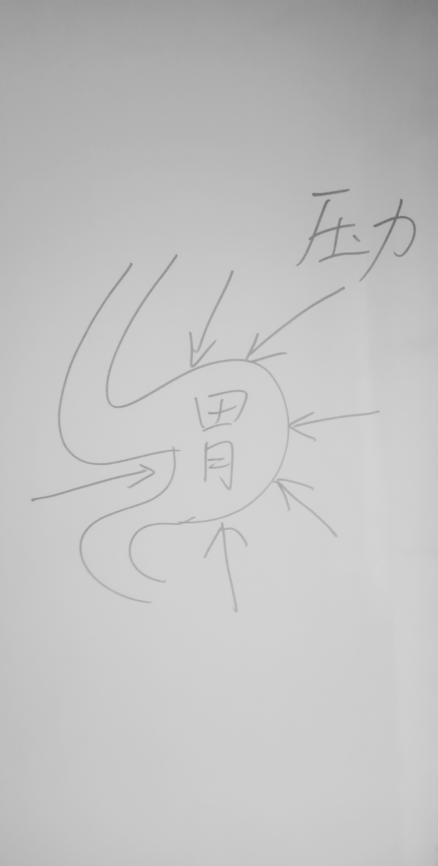 压力
胃